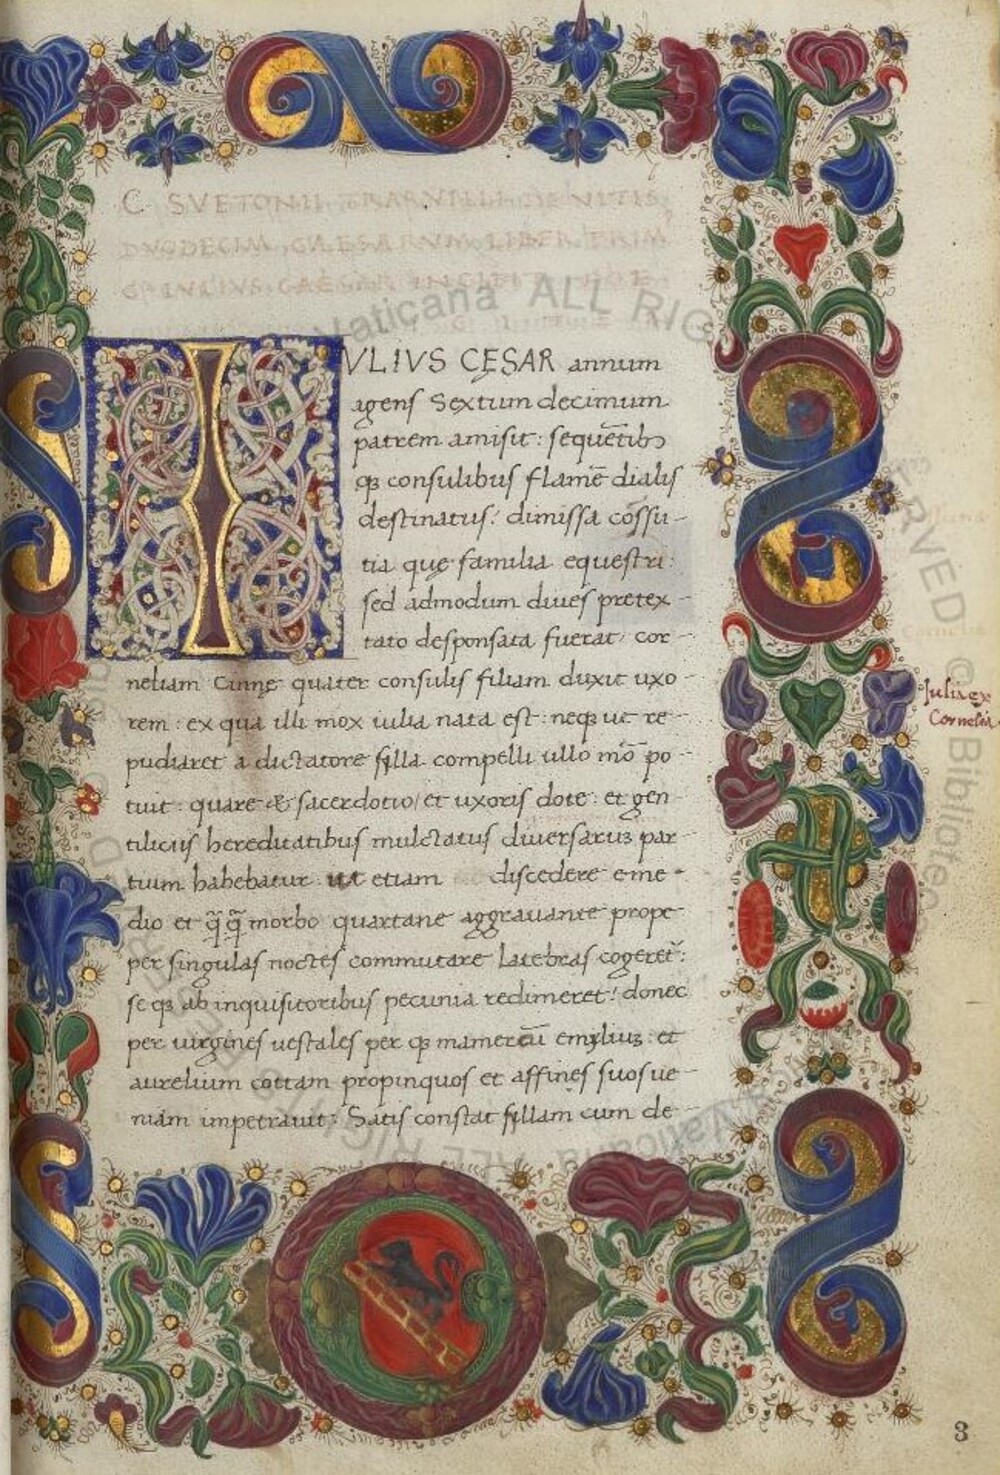 C SVETONII TRANVILLI DE VITIS
DVODECIM CAESARVM LIBER PRIM
IVLIVS CAESAR INCIPIT
IVLIVS CĘSAR annum
agens Sextum decimum
patrem amisit : sequẽtibꝫ
qꝫ consulibus flamẽ dialis
destinatus : dimissa cõssu-
tia quę familia equestri :
sed admodum diues pretex-
tato desponsata fuerat cor-
neliam Cinnę quater consulis filiam duxit uxo-
rem : ex qua illi mox iulia nata est : neqꝫ ut re-
pudiaret a dictatore sylla compelli ullo mõ po-
tuit : quare & sacerdotio / et uxoris dote : et gen-
tiliciis hereditatibus mulctatus diuersaruꝫ par-
tium habebatur ut etiam discedere e me-
dio et q̃q̃ morbo quartane aggrauante prope-
per singulas noctes commutare latebras cogeret̃ :
se qꝫ ab inquisitoribus pecunia redimeret : donec
per uirgines uestales per qꝫ mamercũ emyliuꝫ : et
aurelium cottam propinquos et affines suos ue-
niam impetrauit : Satis constat syllam cum de-
Iulia ex
Cornelia
3
Vaticana ALL RIG
ERVED © Bibliotec